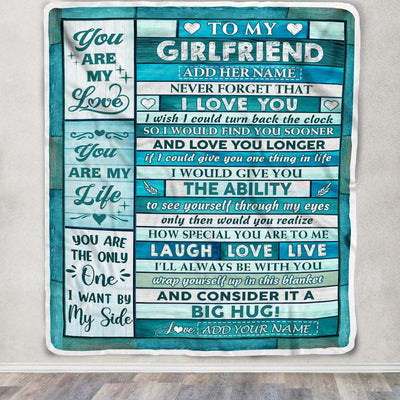 You
ARE MY
Love
You
ARE MY
Life
YOU ARE
THE ONLY
One
I WANT BY
My Side
TO MY
GIRLFRIEND
ADD HER NAME
NEVER FORGET THAT
I LOVE YOU
I wish I could turn back the clock
SO I WOULD FIND YOU SOONER
AND LOVE YOU LONGER
if I could give you one thing in life
I WOULD GIVE YOU
THE ABILITY
to see yourself through my eyes
only then would you realize
HOW SPECIAL YOU ARE TO ME
LAUGH LOVE LIVE
I'LL ALWAYS BE WITH YOU
wrap yourself up in this blanket
AND CONSIDER IT A
BIG HUG!
Love ADD YOUR NAME